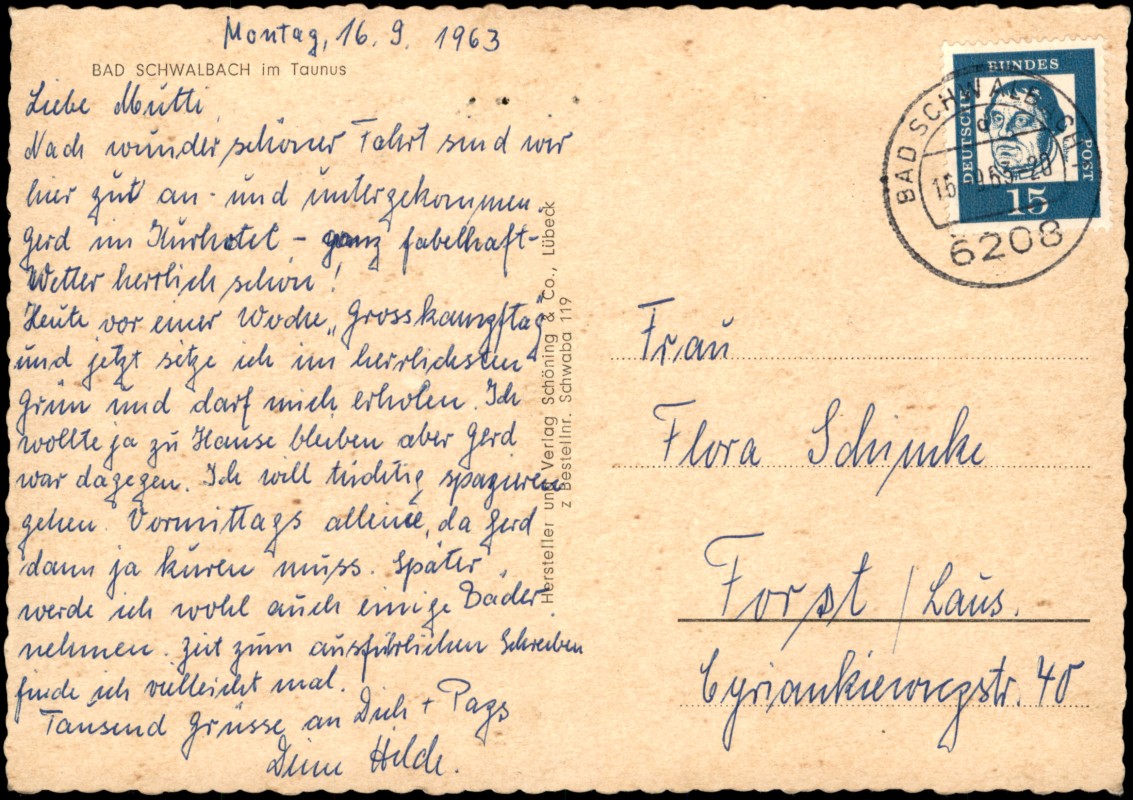 Montag, 16. 9. 1963
BAD SCHWALBACH im Taunus
Liebe Mutti,
Nach wunderschöner Fahrt sind wir
hier gut an- und untergekommen.
Gerd im Kurhotel – ganz fabelhaft –
Wetter herrlich schön!
Heute vor einer Woche „Grosskampftag"
und jetzt sitze ich im herrlichsten
Grün und darf mich erholen. Ich
wollte ja zu Hause bleiben aber Gerd
war dagegen. Ich will tüchtig spazieren
gehen. Vormittags alleine, da Gerd
dann ja kuren muss. Später
werde ich wohl auch einige Bäder
nehmen. Zeit zum ausführlichen Schreiben
finde ich vielleicht mal.
Tausend Grüsse an Dich + Paps
Deine Hilde.
Hersteller und Verlag Schöning & Co., Lübeck
z Bestellnr. Schwaba 119
DEUTSCHE
BUNDES
POST
15
BAD SCHWALBACH
6208
Frau
Flora Schimke
Forst / Laus.